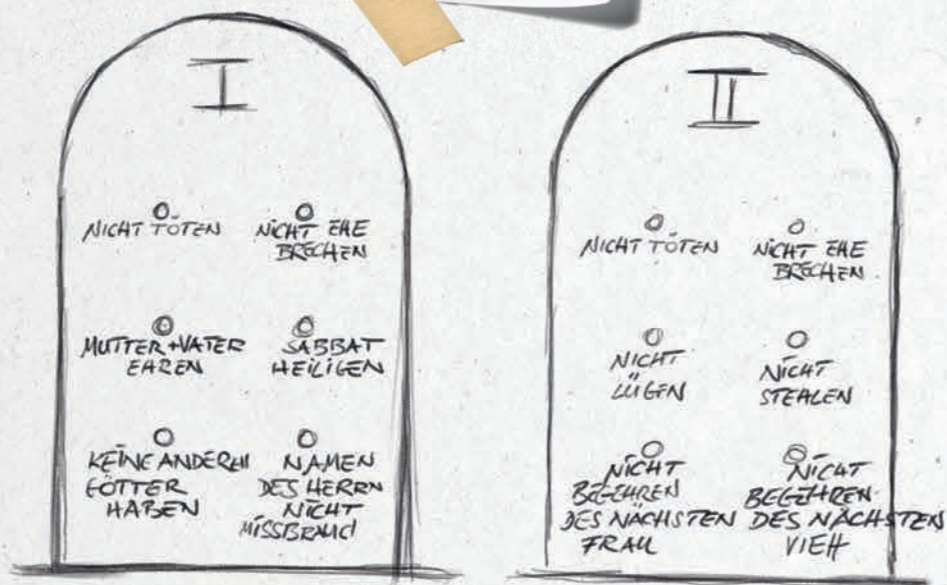 I
NICHT TÖTEN
NICHT EHE
BRECHEN
MUTTER+VATER
EHREN
SABBAT
HEILIGEN
KEINE ANDEREN
GÖTTER
HABEN
NAMEN
DES HERRN
NICHT
MISSBRAUCH
II
NICHT TÖTEN
NICHT EHE
BRECHEN
NICHT
LÜGEN
NICHT
STEHLEN
NICHT
BEGEHREN
DES NÄCHSTEN
FRAU
NICHT
BEGEHREN
DES NÄCHSTEN
VIEH